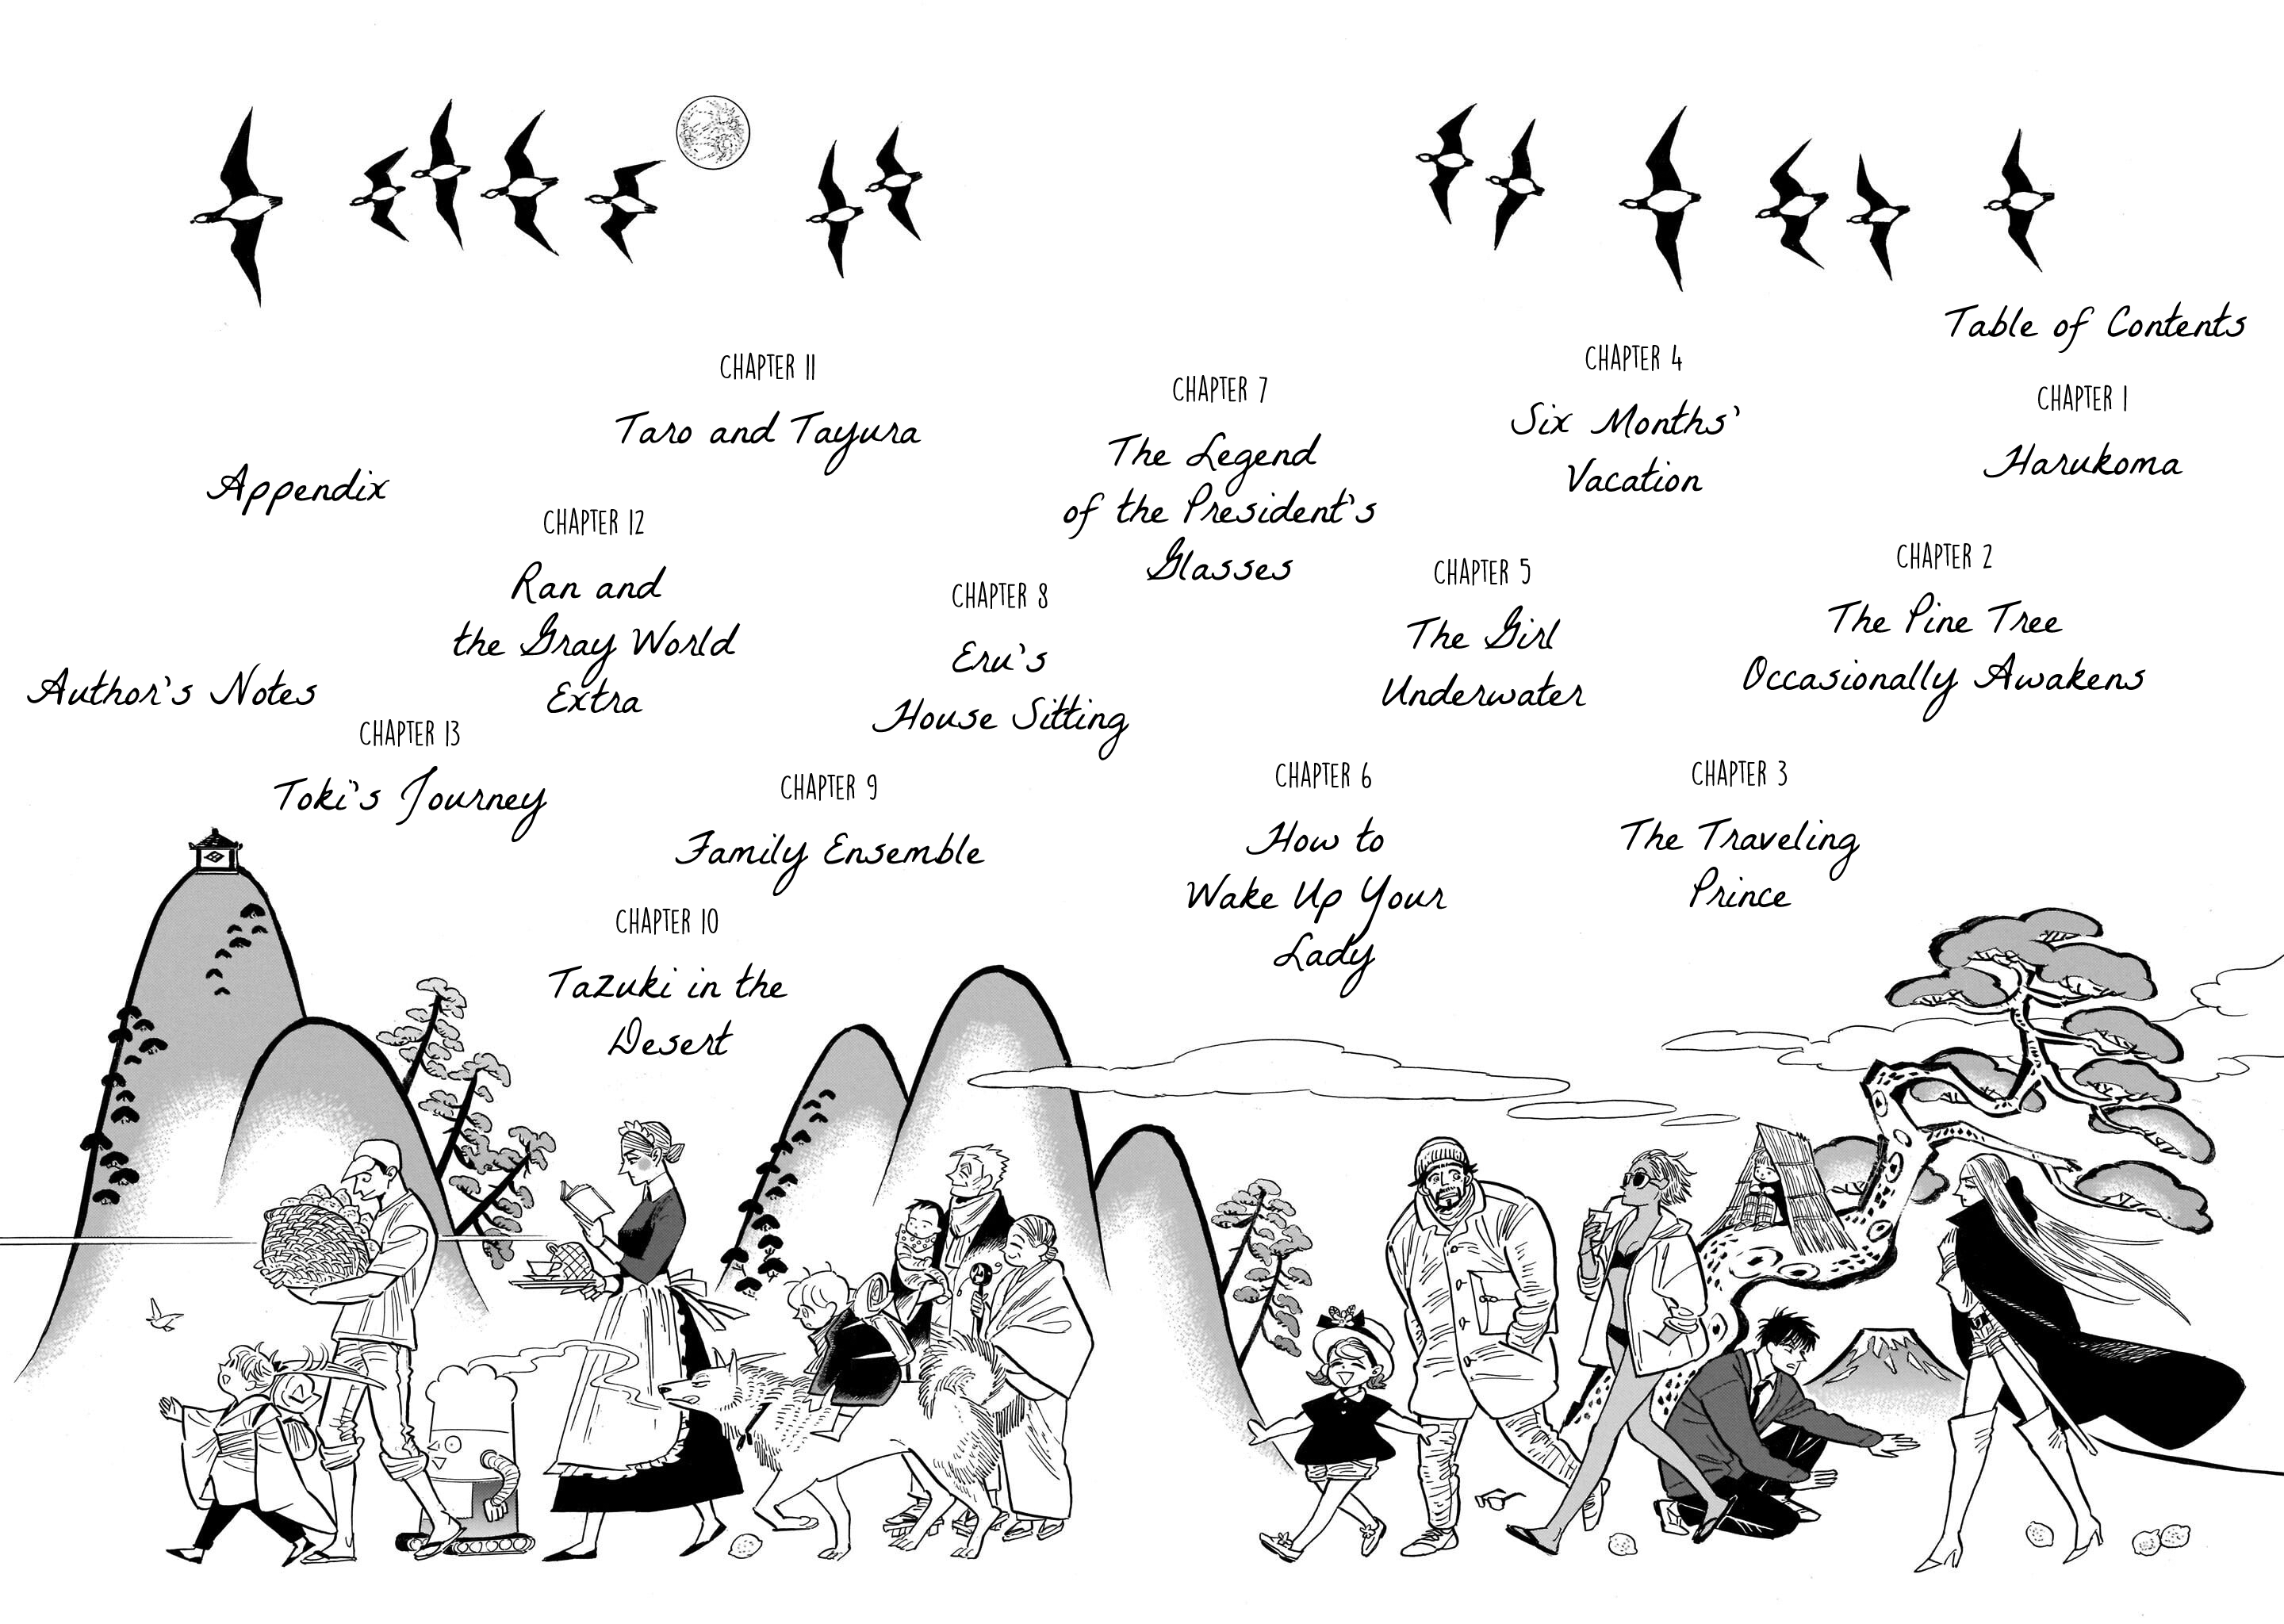 Table of Contents
CHAPTER 1
Harukoma
CHAPTER 2
The Pine Tree
Occasionally Awakens
CHAPTER 3
The Traveling
Prince
CHAPTER 4
Six Months'
Vacation
CHAPTER 5
The Girl
Underwater
CHAPTER 6
How to
Wake Up Your
Lady
CHAPTER 7
The Legend
of the President's
Glasses
CHAPTER 8
Eru's
House Sitting
CHAPTER 9
Family Ensemble
CHAPTER 10
Tazuki in the
Desert
CHAPTER 11
Taro and Tayura
CHAPTER 12
Ran and
the Gray World
Extra
CHAPTER 13
Toki's Journey
Appendix
Author's Notes